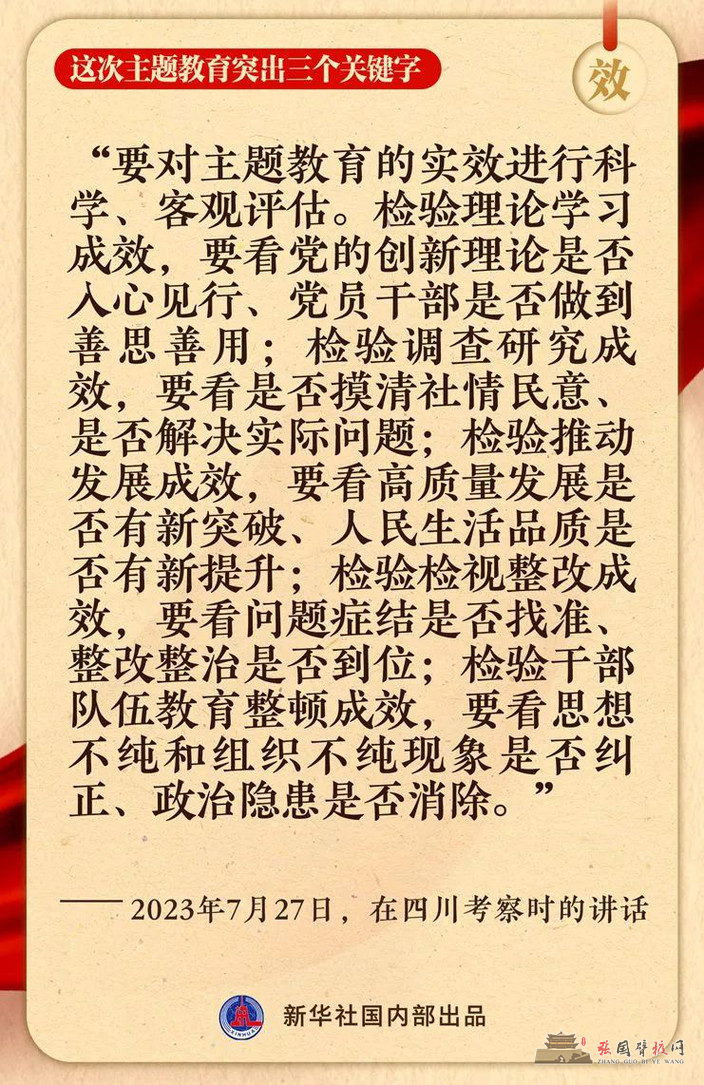 这次主题教育突出三个关键字
效
“要对主题教育的实效进行科
学、客观评估。检验理论学习
成效，要看党的创新理论是否
入心见行、党员干部是否做到
善思善用；检验调查研究成
效，要看是否摸清社情民意、
是否解决实际问题；检验推动
发展成效，要看高质量发展是
否有新突破、人民生活品质是
否有新提升；检验检视整改成
效，要看问题症结是否找准、
整改整治是否到位；检验干部
队伍教育整顿成效，要看思想
不纯和组织不纯现象是否纠
正、政治隐患是否消除。”
—— 2023年7月27日，在四川考察时的讲话
XINHUA
新华社国内部出品
张国臂掖网
ZHANG GUO BI YE WANG